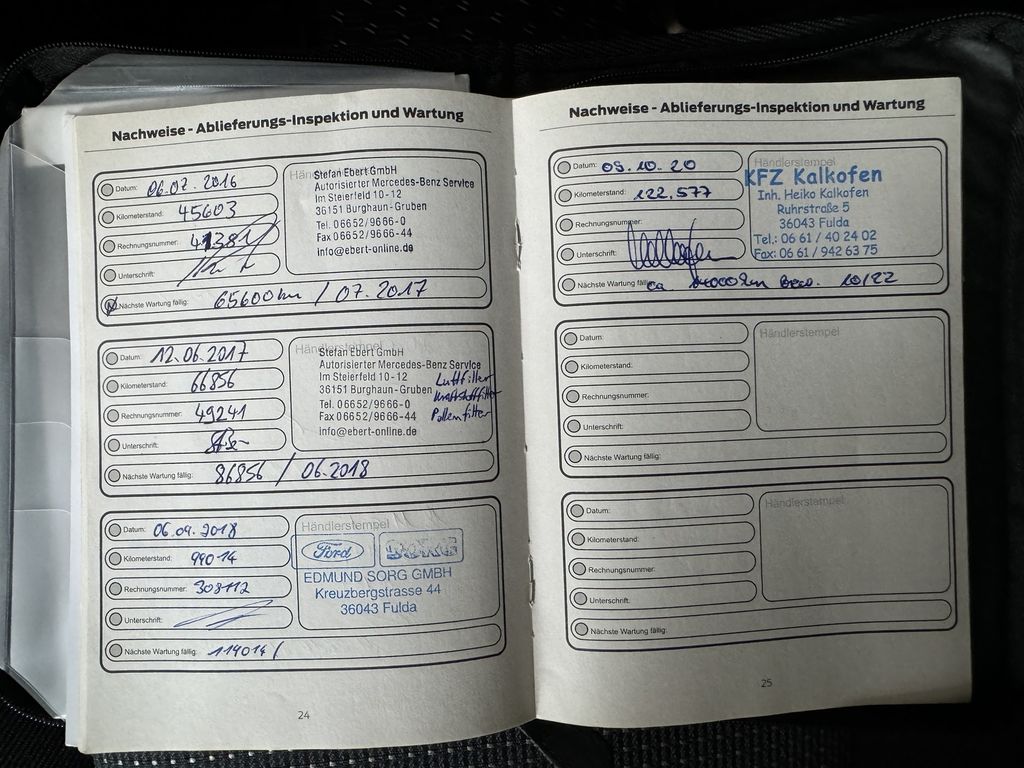 Nachweise - Ablieferungs-Inspektion und Wartung
Datum: 06.07.2016
Kilometerstand: 45603
Rechnungsnummer: 41381
Unterschrift:
Nächste Wartung fällig: 65600km / 07.2017
Händlerstempel
Stefan Ebert GmbH
Autorisierter Mercedes-Benz Service
Im Steierfeld 10-12
36151 Burghaun-Gruben
Tel. 06652/9666-0
Fax 06652/9666-44
info@ebert-online.de
Datum: 12.06.2017
Kilometerstand: 66856
Rechnungsnummer: 49241
Unterschrift:
Nächste Wartung fällig: 86856 / 06.2018
Händlerstempel
Stefan Ebert GmbH
Autorisierter Mercedes-Benz Service
Im Steierfeld 10-12
36151 Burghaun-Gruben
Tel. 06652/9666-0
Fax 06652/9666-44
info@ebert-online.de
Luftfilter
Kraftstofffilter
Pollenfilter
Datum: 06.09.2018
Kilometerstand: 99014
Rechnungsnummer: 308112
Unterschrift:
Nächste Wartung fällig: 119014 /
Händlerstempel
Ford
EDMUND SORG GMBH
Kreuzbergstrasse 44
36043 Fulda
24
Nachweise - Ablieferungs-Inspektion und Wartung
Datum: 05.10.20
Kilometerstand: 122.577
Rechnungsnummer:
Unterschrift:
Nächste Wartung fällig: ca 10/22
Händlerstempel
KFZ Kalkofen
Inh. Heiko Kalkofen
Ruhrstraße 5
36043 Fulda
Tel.: 06 61 / 40 24 02
Fax: 06 61 / 942 63 75
Datum:
Kilometerstand:
Rechnungsnummer:
Unterschrift:
Nächste Wartung fällig:
Händlerstempel
Datum:
Kilometerstand:
Rechnungsnummer:
Unterschrift:
Nächste Wartung fällig:
Händlerstempel
25